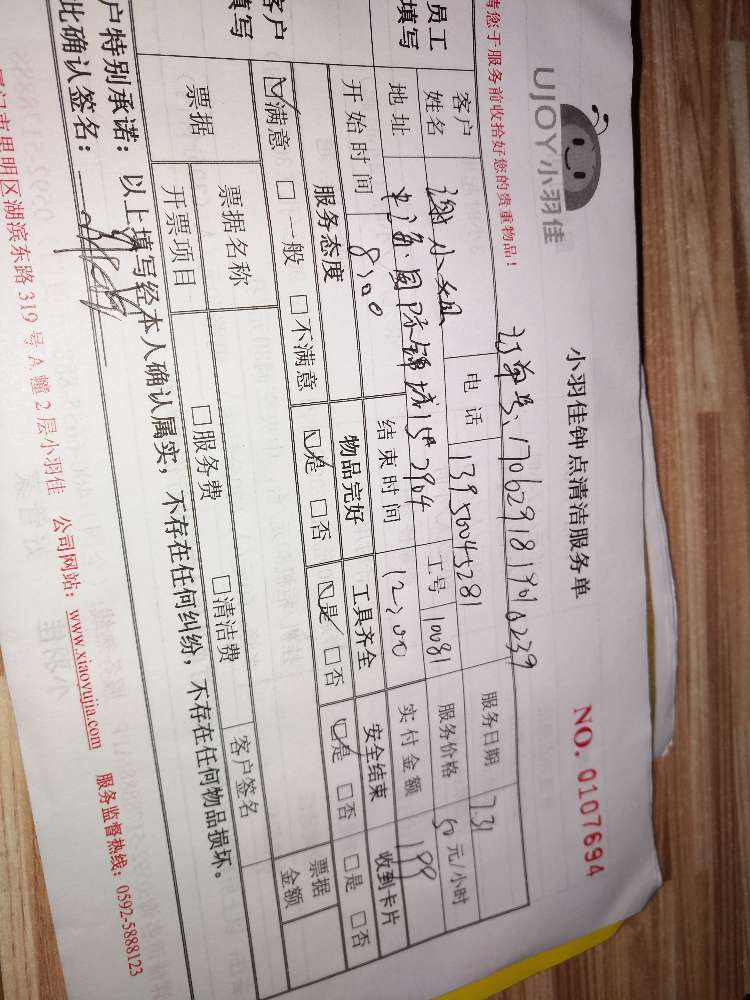 UJOY小羽佳
小羽佳钟点清洁服务单
NO. 0107694
请您于服务前收拾好您的贵重物品！
订单号: 
员工
填写
客户
姓名
谢小姐
电话
13950045281
服务日期
7.31
地址
国际
7904
工号
10081
服务价格
50元/小时
开始时间
8:00
结束时间
12:00
实付金额
199
客户
填写
服务态度
物品完好
工具齐全
安全结束
收到卡片
☑满意 □一般 □不满意
☑是 □否
☑是 □否
☑是 □否
□是 □否
票据
票据名称
票据
金额
开票项目
□服务费 □清洁费
客户签名
户特别承诺：以上填写经本人确认属实，不存在任何纠纷，不存在任何物品损坏。
此确认签名：
门市思明区湖滨东路 319 号 A 幢 2 层小羽佳 公司网站：www.xiaoyujia.com 服务监督热线：0592-5888123